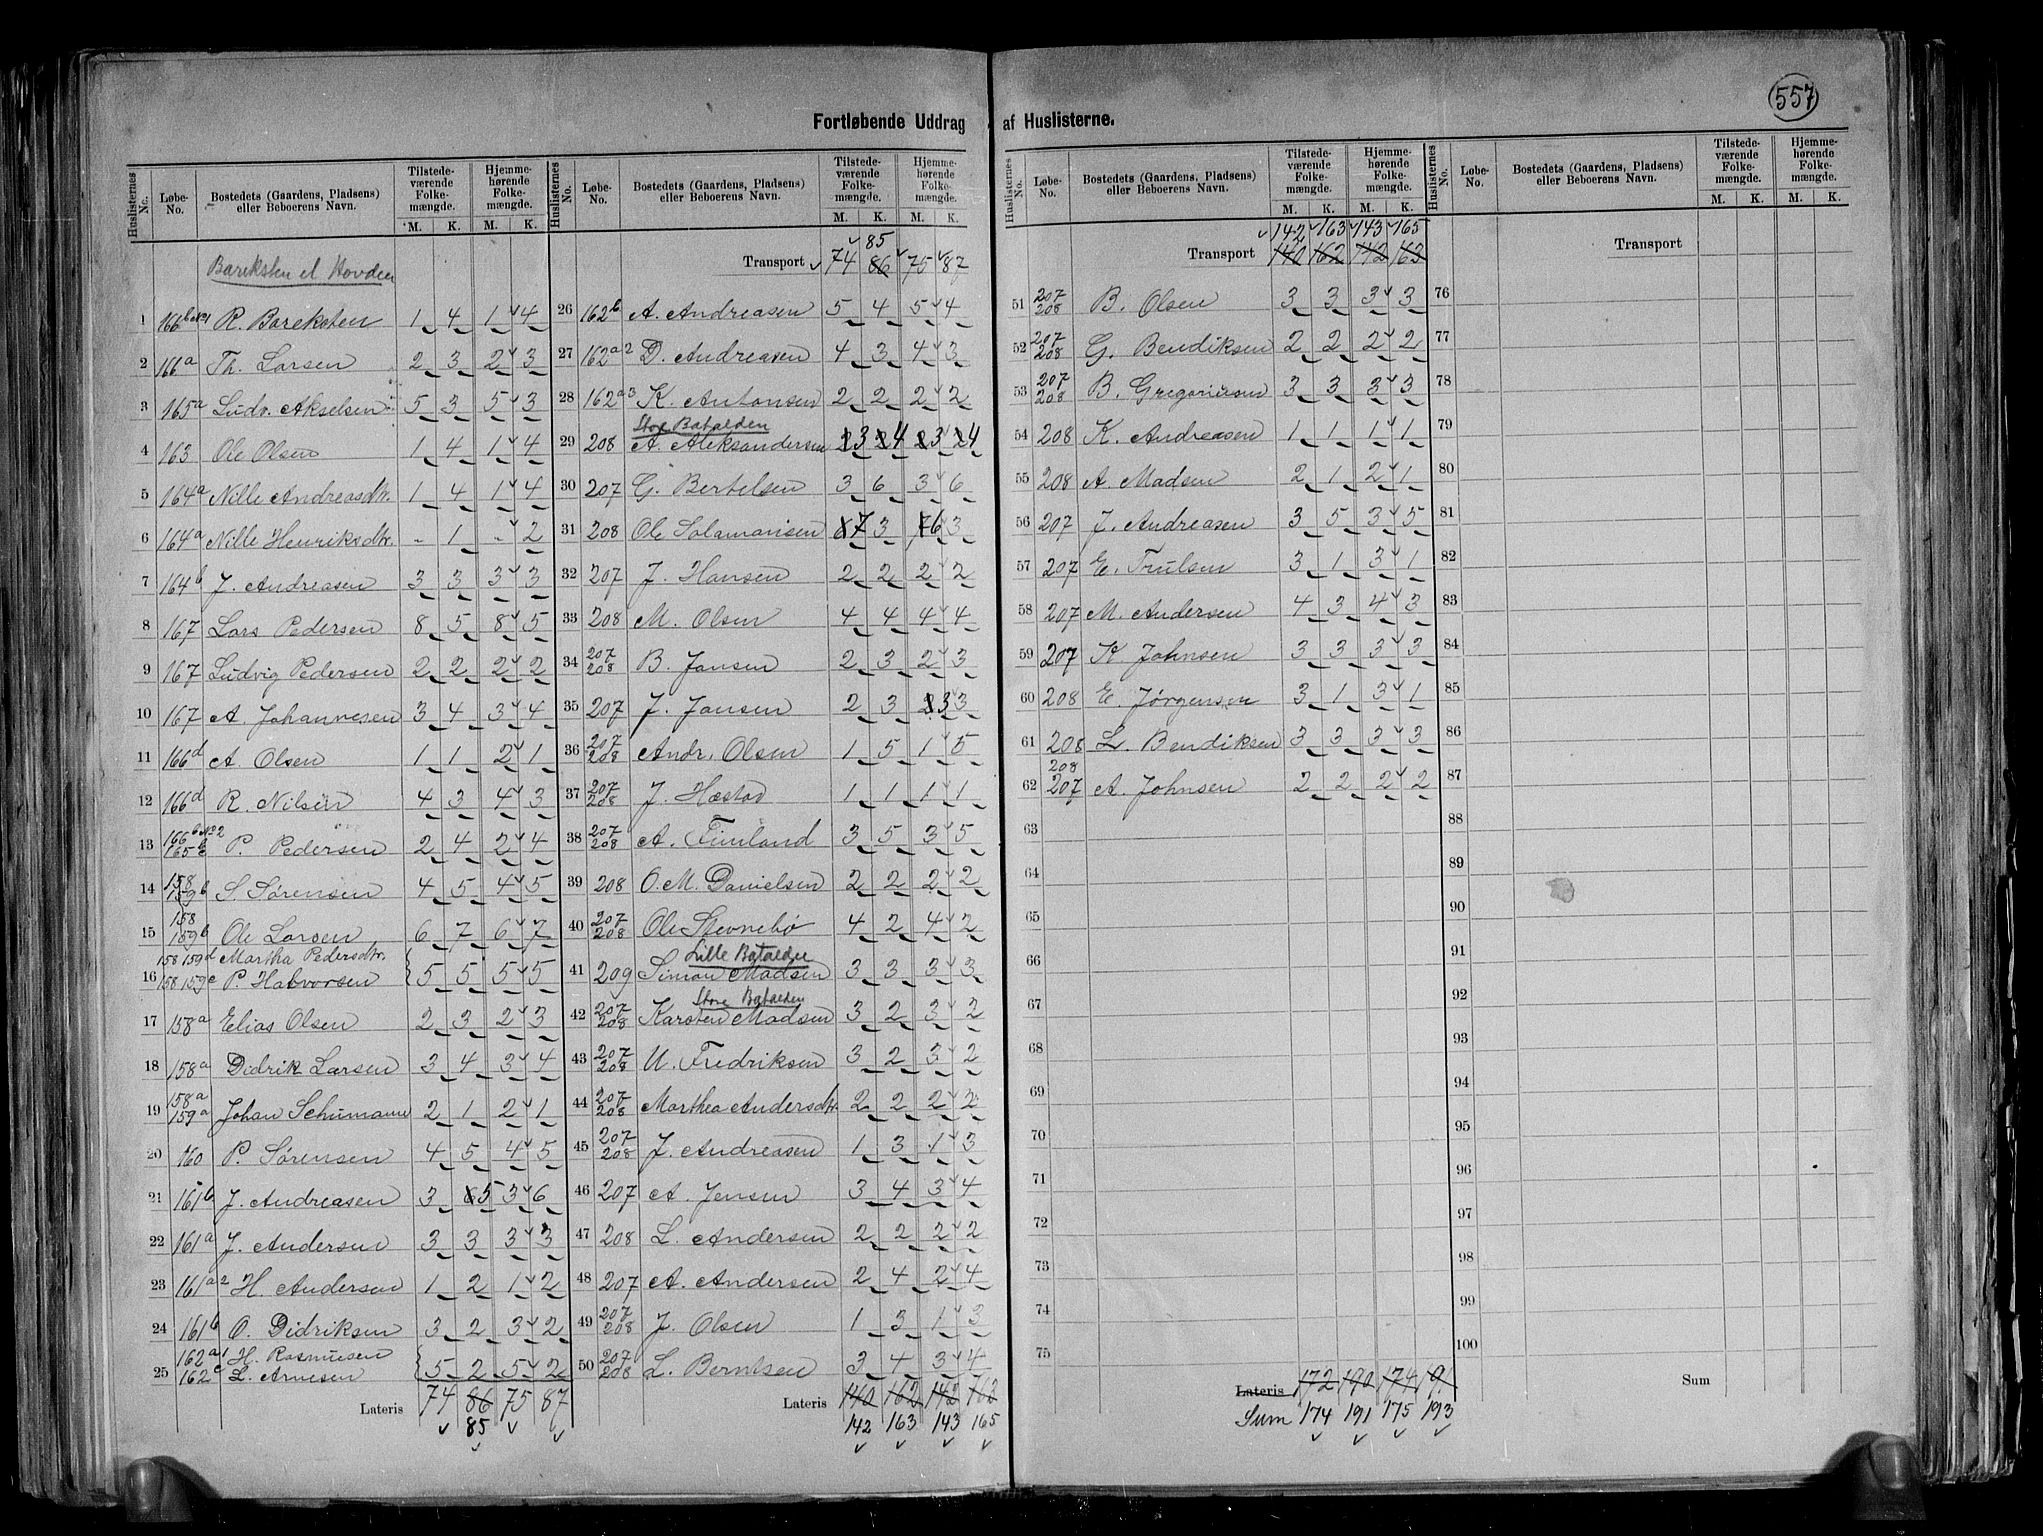 557
Fortløbende Uddrag af Huslisterne.
Huslisternes No. Løbe-No. Bostedets (Gaardens, Pladsens) eller Beboerens Navn. Tilstedeværende Folkemængde. Hjemmehørende Folkemængde.
M. K. M. K.
Bareksten et Hovden
1 166b No1 R. Bareksten 1 4 1 4
2 166a Th. Larsen 2 3 2 3
3 165a Ludv. Akselsen 5 3 5 3
4 163 Ole Olsen 1 4 1 4
5 164a Nille Andreasdtr. 1 4 1 4
6 164a Nille Henriksdtr. - 1 - 2
7 164b J. Andreasen 3 3 3 3
8 167 Lars Pedersen 8 5 8 5
9 167 Ludvig Pedersen 2 2 2 2
10 167 A. Johannesen 3 4 3 4
11 166d A. Olsen 1 1 2 1
12 166d R. Nilsen 4 3 4 3
13 166b No2 165 P. Pedersen 2 4 2 4
14 158 159b S. Sørensen 4 5 4 5
15 158 159b Ole Larsen 6 7 6 7
158 159d Martha Pedersdtr.
16 158 159c P. Halvorsen 5 5 5 5
17 158a Elias Olsen 2 3 2 3
18 158a Didrik Larsen 3 4 3 4
19 158a 159a Johan Schumann 2 1 2 1
20 160 P. Sørensen 4 5 4 5
21 161b J. Andreasen 3 5 3 6
22 161a J. Andersen 3 3 3 3
23 161a2 H. Andersen 1 2 1 2
24 161b O. Didriksen 3 2 3 2
162a1 H. Rasmusen
25 162c L. Arnesen 5 2 5 2
Lateris 74 86 75 87
85
Huslisternes No. Løbe-No. Bostedets (Gaardens, Pladsens) eller Beboerens Navn. Tilstedeværende Folkemængde. Hjemmehørende Folkemængde.
M. K. M. K.
85
Transport 74 86 75 87
26 162b A. Andreasen 5 4 5 4
27 162a2 D. Andreasen 4 3 4 3
28 162a3 K. Antonsen 2 2 2 2
Store Batalden
29 208 A. Aleksandersen 3 4 3 4
30 207 G. Bertelsen 3 6 3 6
31 208 Ole Salamonsen 7 3 6 3
32 207 J. Hansen 2 2 2 2
33 208 M. Olsen 4 4 4 4
34 207 208 B. Jansen 2 3 2 3
35 207 J. Jansen 2 3 3 3
36 207 208 Andr. Olsen 1 5 1 5
37 207 208 J. Hæstad 1 1 1 1
38 207 208 A. Fimland 3 5 3 5
39 208 O. M. Danielsen 2 2 2 2
40 207 208 Ole Stevnebø 4 2 4 2
Lille Batalden
41 209 Simon Madsen 3 3 3 3
Store Batalden
42 207 208 Karsten Madsen 3 2 3 2
43 207 208 U. Fredriksen 3 2 3 2
44 207 208 Marthea Andersdtr. 2 2 2 2
45 207 208 J. Andreasen 1 3 1 3
46 207 A. Jensen 3 4 3 4
47 208 L. Andersen 2 2 2 2
48 207 A. Andersen 2 4 2 4
49 207 208 J. Olsen 1 3 1 3
50 207 208 L. Berntsen 3 4 3 4
Lateris 140 162 142 162
142 163 143 165
Huslisternes No. Løbe-No. Bostedets (Gaardens, Pladsens) eller Beboerens Navn. Tilstedeværende Folkemængde. Hjemmehørende Folkemængde.
M. K. M. K.
142 163 143 165
Transport 140 162 142 163
51 207 208 B. Olsen 3 3 3 3
52 207 208 G. Bendiksen 2 2 2 2
53 207 208 B. Gregoriusen 3 3 3 3
54 208 K. Andreasen 1 1 1 1
55 208 A. Madsen 2 1 2 1
56 207 J. Andreasen 3 5 3 5
57 207 E. Trulsen 3 1 3 1
58 207 M. Andersen 4 3 4 3
59 207 K. Johnsen 3 3 3 3
60 208 E. Jørgensen 3 1 3 1
61 208 L. Bendiksen 3 3 3 3
62 208 207 A. Johnsen 2 2 2 2
63
64
65
66
67
68
69
70
71
72
73
74
75
Lateris 172 190 174 191
Sum 174 191 175 193
Huslisternes No. Løbe-No. Bostedets (Gaardens, Pladsens) eller Beboerens Navn. Tilstedeværende Folkemængde. Hjemmehørende Folkemængde.
M. K. M. K.
Transport
76
77
78
79
80
81
82
83
84
85
86
87
88
89
90
91
92
93
94
95
96
97
98
99
100
Sum